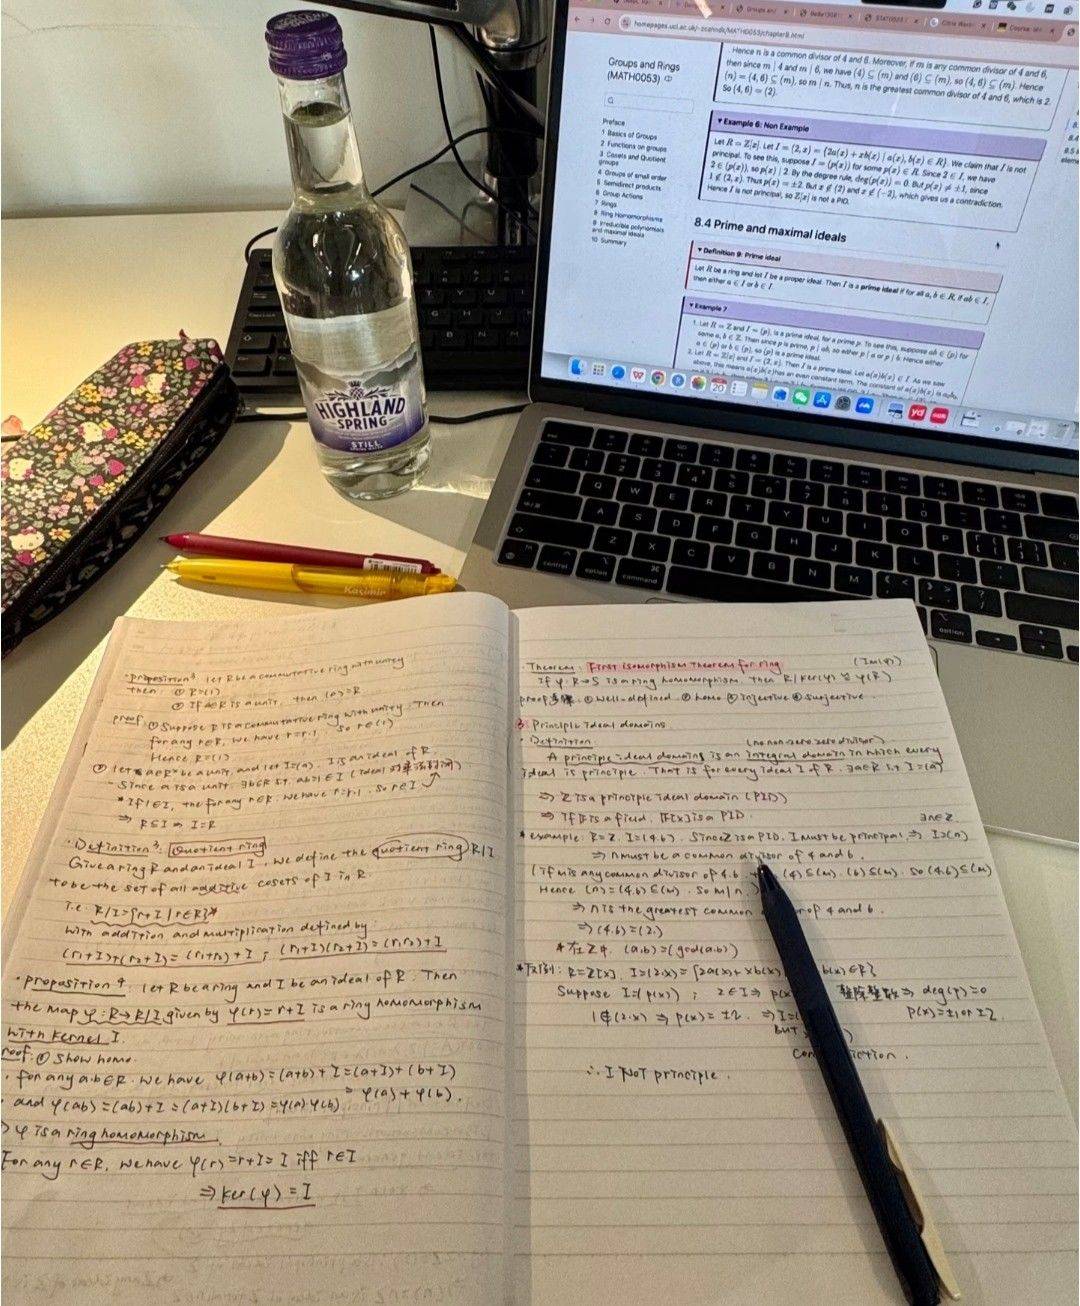 HIGHLAND
SPRING
HIGHLAND
SPRING
STILL
Kasimir
homepages.ucl.ac.uk/
Groups and Rings
(MATH0053)
Preface
1 Basics of Groups
2 Functions on groups
3 Cosets and Quotient
groups
4 Groups of small order
5 Semidirect products
6 Group Actions
7 Rings
8 Ring Homomorphisms
9 Irreducible polynomials
and maximal ideals
10 Summary
Hence n is a common divisor of 4 and 6. Moreover, if m is any common divisor of 4 and 6,
then since m | 4 and m | 6, we have (4) ⊆ (m) and (6) ⊆ (m), so (4, 6) ⊆ (m). Hence
(n) = (4, 6) ⊆ (m), so m | n. Thus, n is the greatest common divisor of 4 and 6, which is 2.
So (4, 6) = (2).
▼ Example 6: Non Example
Let R = Z[x]. Let I = (2, x) = {2a(x) + xb(x) | a(x), b(x) ∈ R}. We claim that I is not
principal. To see this, suppose I = (p(x)) for some p(x) ∈ R. Since 2 ∈ I, we have
2 ∈ (p(x)), so p(x) | 2. By the degree rule, deg(p(x)) = 0. But p(x) ≠ ±1, since
1 ∉ (2, x). Thus p(x) = ±2. But x ∉ (2) and x ∉ (−2), which gives us a contradiction.
Hence I is not principal, so Z[x] is not a PID.
8.4 Prime and maximal ideals
▼ Definition 9: Prime ideal
Let R be a ring and let I be a proper ideal. Then I is a prime ideal if for all a, b ∈ R, if ab ∈ I,
then either a ∈ I or b ∈ I.
▼ Example 7
1. Let R = Z and I = (p), is a prime ideal, for a prime p. To see this, suppose ab ∈ (p) for
some a, b ∈ Z. Then since p is prime, p | ab, so either p | a or p | b. Hence either
a ∈ (p) or b ∈ (p), so (p) is a prime ideal.
2. Let R = Z[x] and I = (2, x). Then I is a prime ideal. Let a(x)b(x) ∈ I. As we saw
above, this means a(x)b(x) has an even constant term. The constant of a(x)b(x) is
· proposition³ let R be a commutative ring with unity
then ① R=(1)
② If a∈R is a unit, then (a)=R
proof: ① Suppose R is a commutative ring with unity. Then
for any r∈R, we have r=r·1. so r∈(1)
Hence R=(1)
② let a∈R* be a unit, and let I=(a). I is an ideal of R.
Since a is a unit ∃b∈R s.t. ab=1∈I (ideal
* If 1∈I, the for any r∈R. we have r=r·1. so r∈I
⇒ R⊆I ⇒ I=R
· Definition³: Quotient ring
Give a ring R and an ideal I. We define the quotient ring R/I
to be the set of all additive cosets of I in R.
i.e. R/I={r+I | r∈R}
with addition and multiplication defined by
(r₁+I)+(r₂+I)=(r₁+r₂)+I ; (r₁+I)(r₂+I)=(r₁r₂)+I
· proposition⁴. let R be a ring and I be an ideal of R. Then
the map φ: R→R/I given by φ(r)=r+I is a ring homomorphism
with kernel I.
roof: ① Show homo.
· for any a.b∈R. we have φ(a+b)=(a+b)+I=(a+I)+(b+I)
= φ(a)+φ(b).
and φ(ab)=(ab)+I=(a+I)(b+I)=φ(a)φ(b)
φ is a ring homomorphism.
For any r∈R, we have φ(r)=r+I=I iff r∈I
⇒ ker(φ)=I
· Theorem: First isomorphism Theorem for ring. (Im(φ))
If φ: R→S is a ring homomorphism. then R/ker(φ)≅φ(R)
proof步骤. ① well-defined. ② homo ③ injective ④ surjective.
3. Principle ideal domains
· Definition. (no non-zero zero divisor)
A principle ideal domains is an integral domain in which every
ideal is principle. That is for every ideal I of R. ∃a∈R s.t. I=(a)
⇒ Z is a principle ideal domain (PID)
⇒ If F is a field. F[x] is a PID.
∃n∈Z.
* example: R=Z, I=(4.6). Since Z is a PID. I must be principal ⇒ I=(n)
⇒ n must be a common divisor of 4 and 6.
(if m is any common divisor of 4.6. (4)⊆(m). (6)⊆(m). so (4.6)⊆(m)
Hence (n)=(4.6)⊆(m). so m|n.)
⇒ n is the greatest common of 4 and 6.
⇒ (4.6)=(2.)
* 在Z中. (a.b)=(gcd(a.b))
* 反例: R=Z[x]. I=(2.x)={2a(x)+xb(x) b(x)∈R}
Suppose I=(p(x)) ; 2∈I ⇒ 整除整数 ⇒ deg(p)=0
p(x)=±1 or ±2.
1∉(2.x) ⇒ p(x)=±2. ⇒ I=
But
∴ I Not principle.